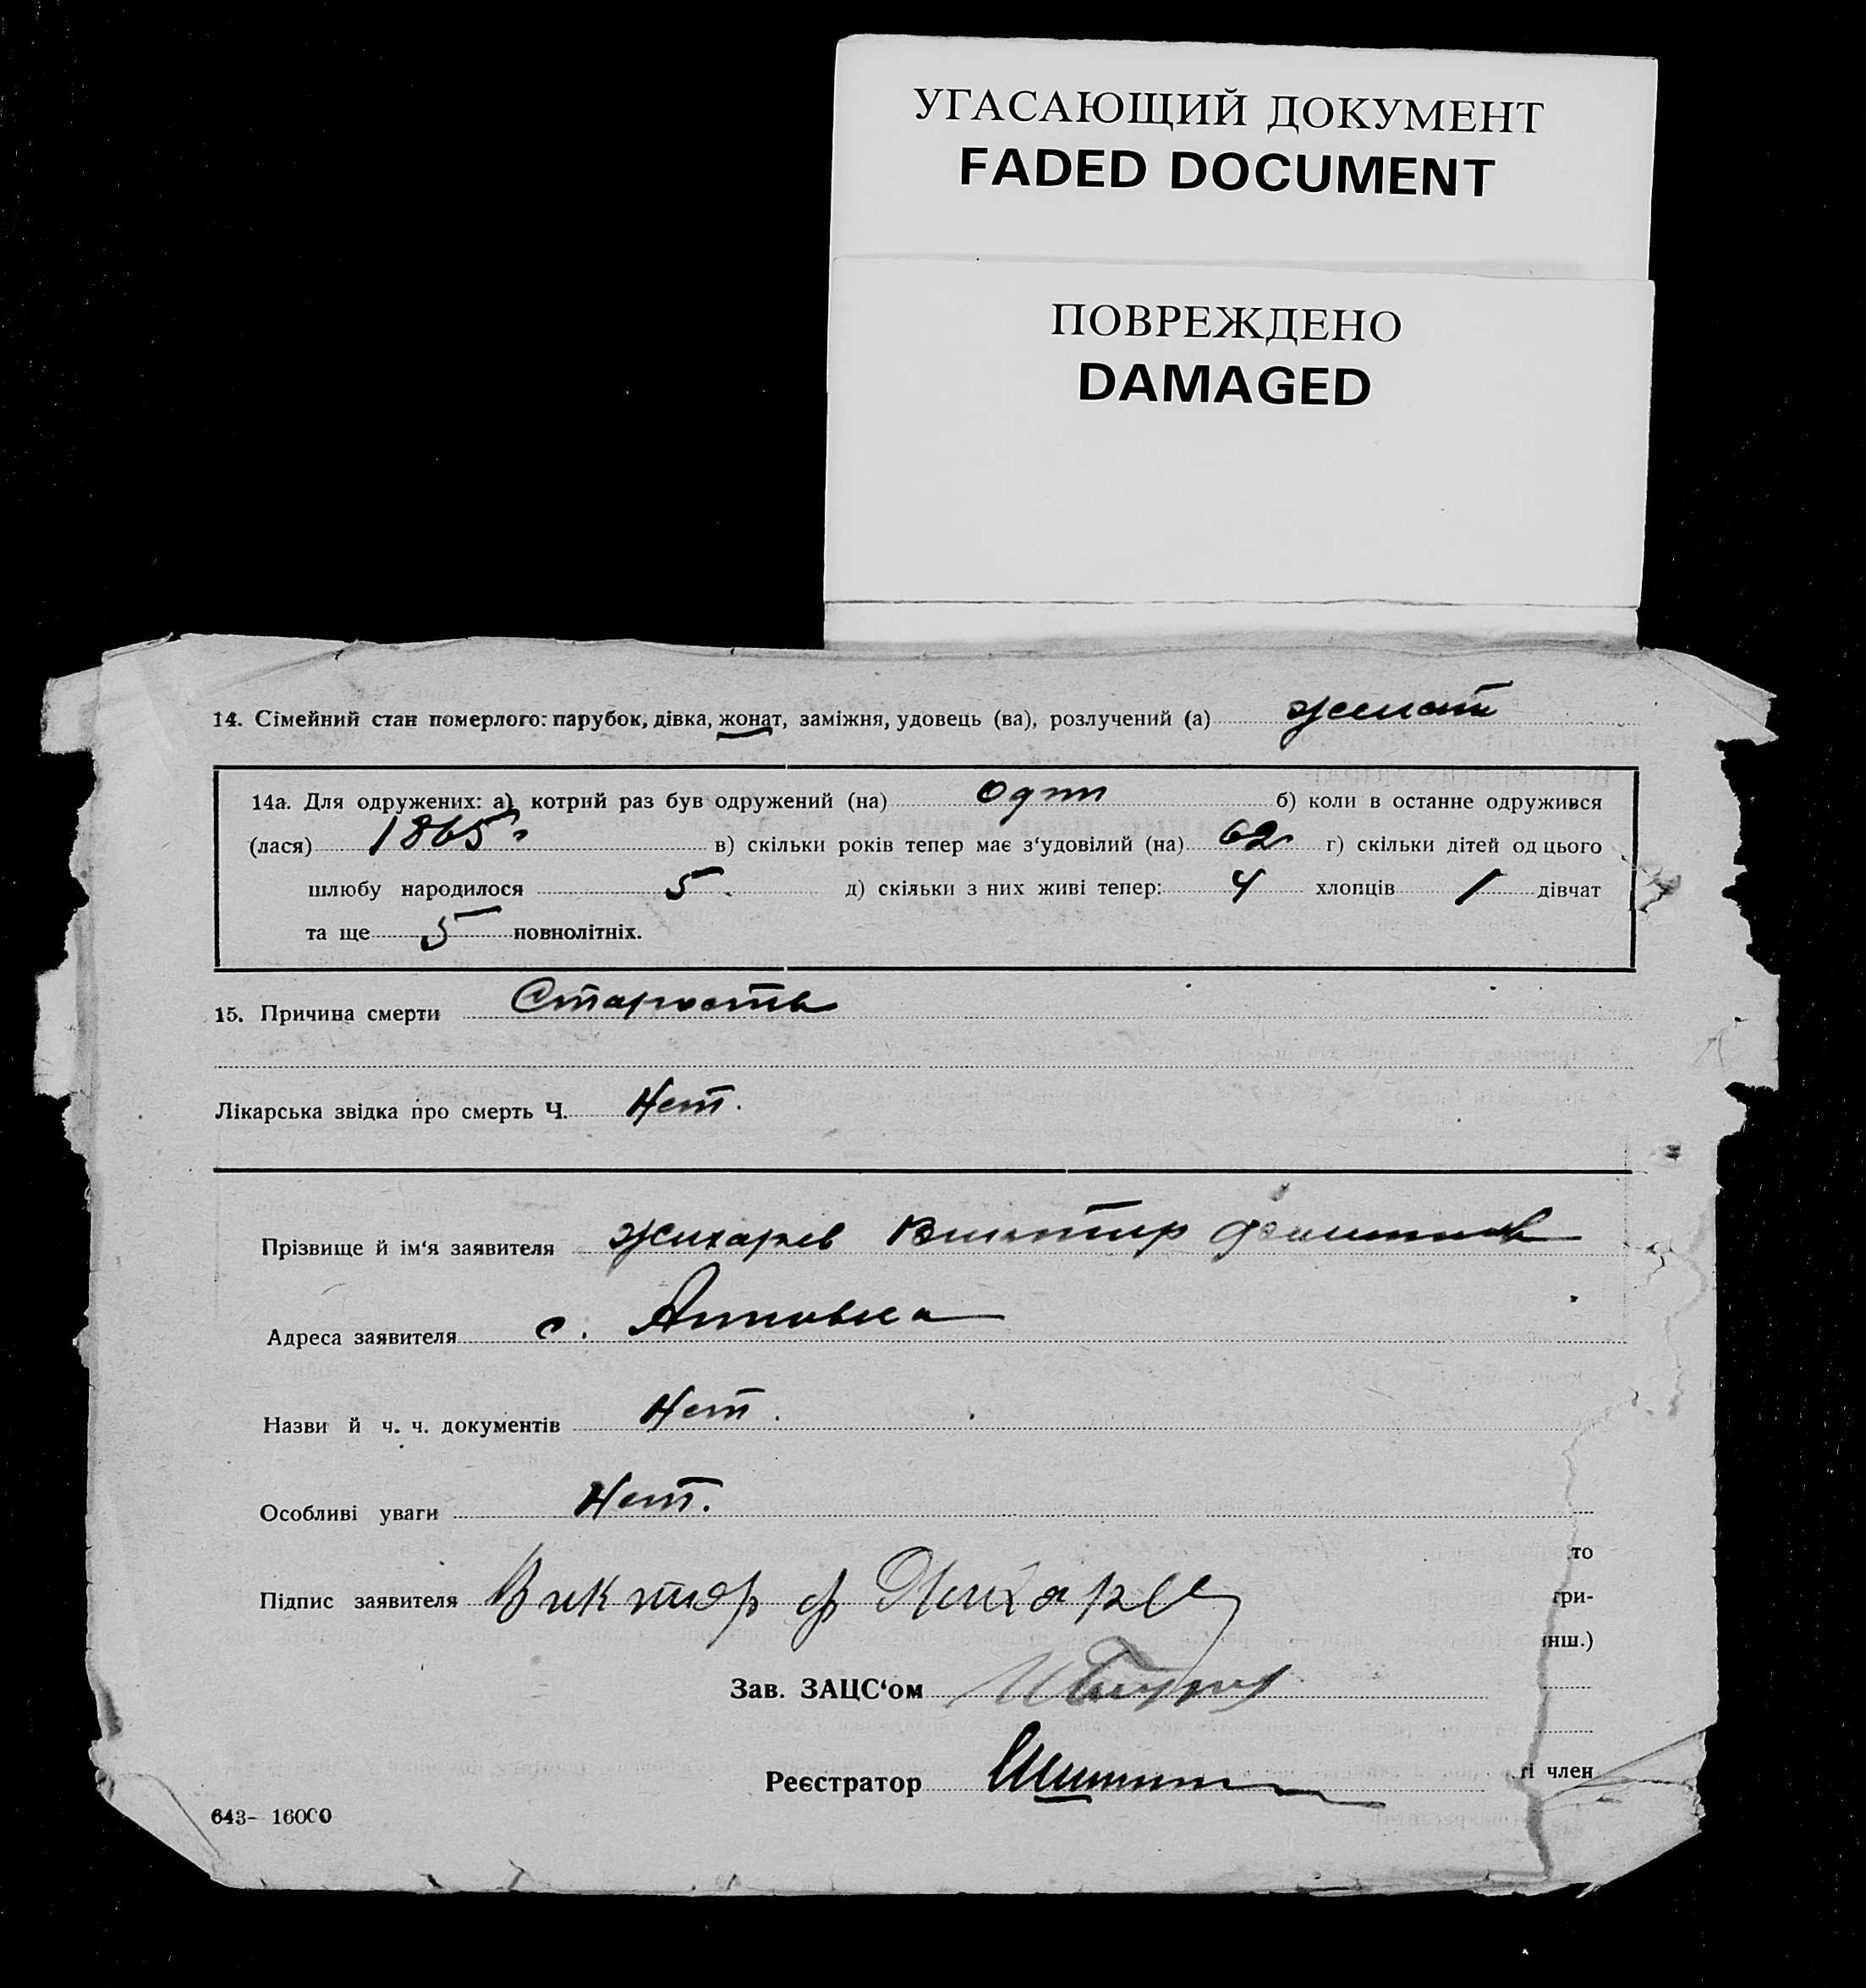 УГАСАЮЩИЙ ДОКУМЕНТ
FADED DOCUMENT
ПОВРЕЖДЕНО
DAMAGED
14. Сімейний стан померлого: парубок, дівка, жонат, заміжня, удовець (ва), розлучений (а) женат
14а. Для одружених: а) котрий раз був одружений (на) один б) коли в останне одружився
(лася) 1865 г в) скільки років тепер має з‘удовілий (на) 62 г) скільки дітей од цього
шлюбу народилося 5. д) скільки з них живі тепер: 4 хлопців 1 дівчат
та ще 5 повнолітніх.
15. Причина смерти Старость
Лікарська звідка про смерть Ч. Нет.
Прізвище й ім‘я заявителя Жихарев Виктор
Адреса заявителя с.
Назви й ч. ч. документів Нет.
Особливі уваги Нет.
то
Підпис заявителя Виктор ф Жихарев
гри-
інш.)
Зав. ЗАЦС‘ом
Реєстратор
гі член
643- 16000